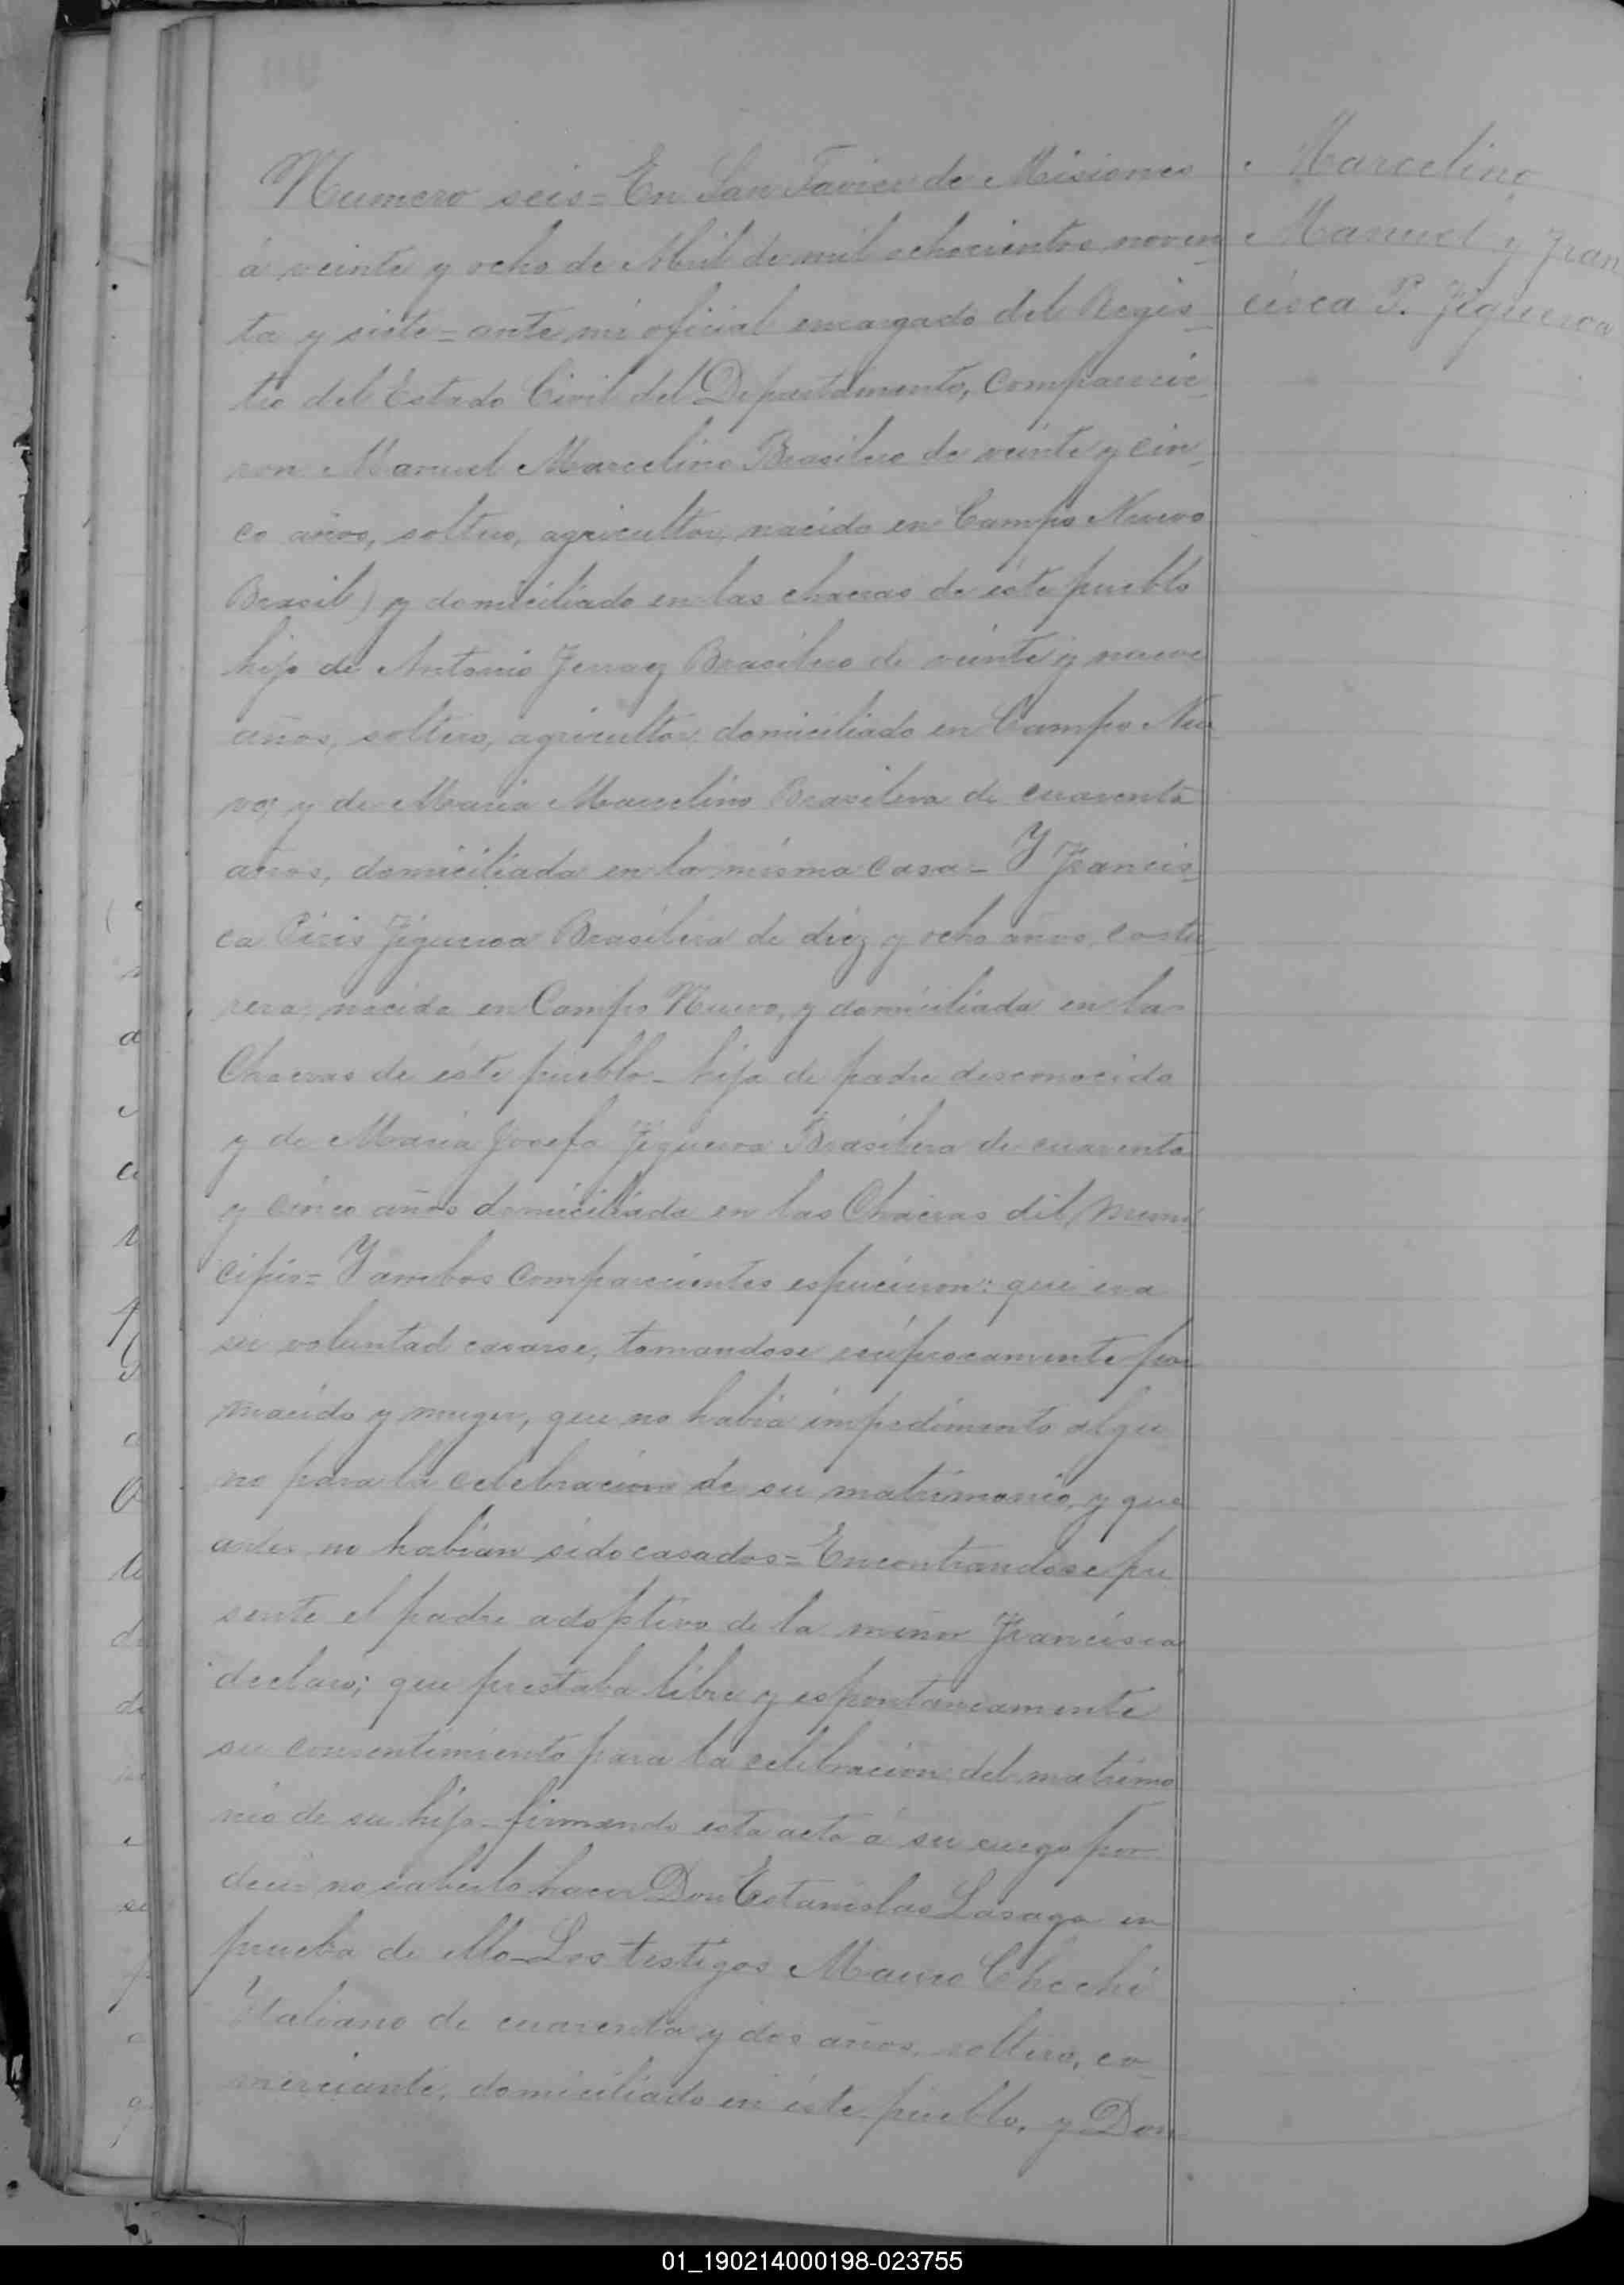 Marcelino
Manuel y Fran
cisca P. Figueroa
Numero seis = En San Javier de Misiones
á veinte y ocho de Abril de mil ochocientos noven
ta y siete = ante mi oficial encargado del Regis-
tro del Estado Civil del Departamento, comparecie-
ron Manuel Marcelino Brasilero de veinte y cin-
co años, soltero, agricultor, nacido en Campo Nuevo
Brasil) y domiciliado en las chacras de éste pueblo
hijo de Antonio Ferraz Brasilero de veinte y nueve
años, soltero, agricultor domiciliado en Campo Nue
vo; y de Maria Marcelino Brasilera de cuarenta
años, domiciliada en la misma casa - Y Francis-
ca Piris Figueroa Brasilera de diez y ocho años, costu-
rera, nacida en Campo Nuevo, y domiciliada en las
Chacras de éste pueblo - hija de padre desconocido
y de Maria Josefa Figueroa Brasilera de cuarenta
y cinco años domiciliada en las Chacras del Muni
cipio = Y ambos comparecientes espucieron: que era
su voluntad casarse, tomandose reciprocamente por
marido y muger, que no habia impedimento algu
no para la celebracion de su matrimonio, y que
antes no habian sido casados = Encontrandose pre
sente el padre adoptivo de la menor Francisca
declaro; que prestaba libre y espontaneamente
su consentimiento para la celebracion del matrimo
nio de su hija - firmando esta acta á su ruego por
decir no saberlo hacer Don Estanislao Lasaga en
prueba de ello - Los testigos Mauro Chechi
Italiano de cuarenta y dos años, soltero, co-
merciante, domiciliado en éste pueblo, y Don
01_190214000198-023755